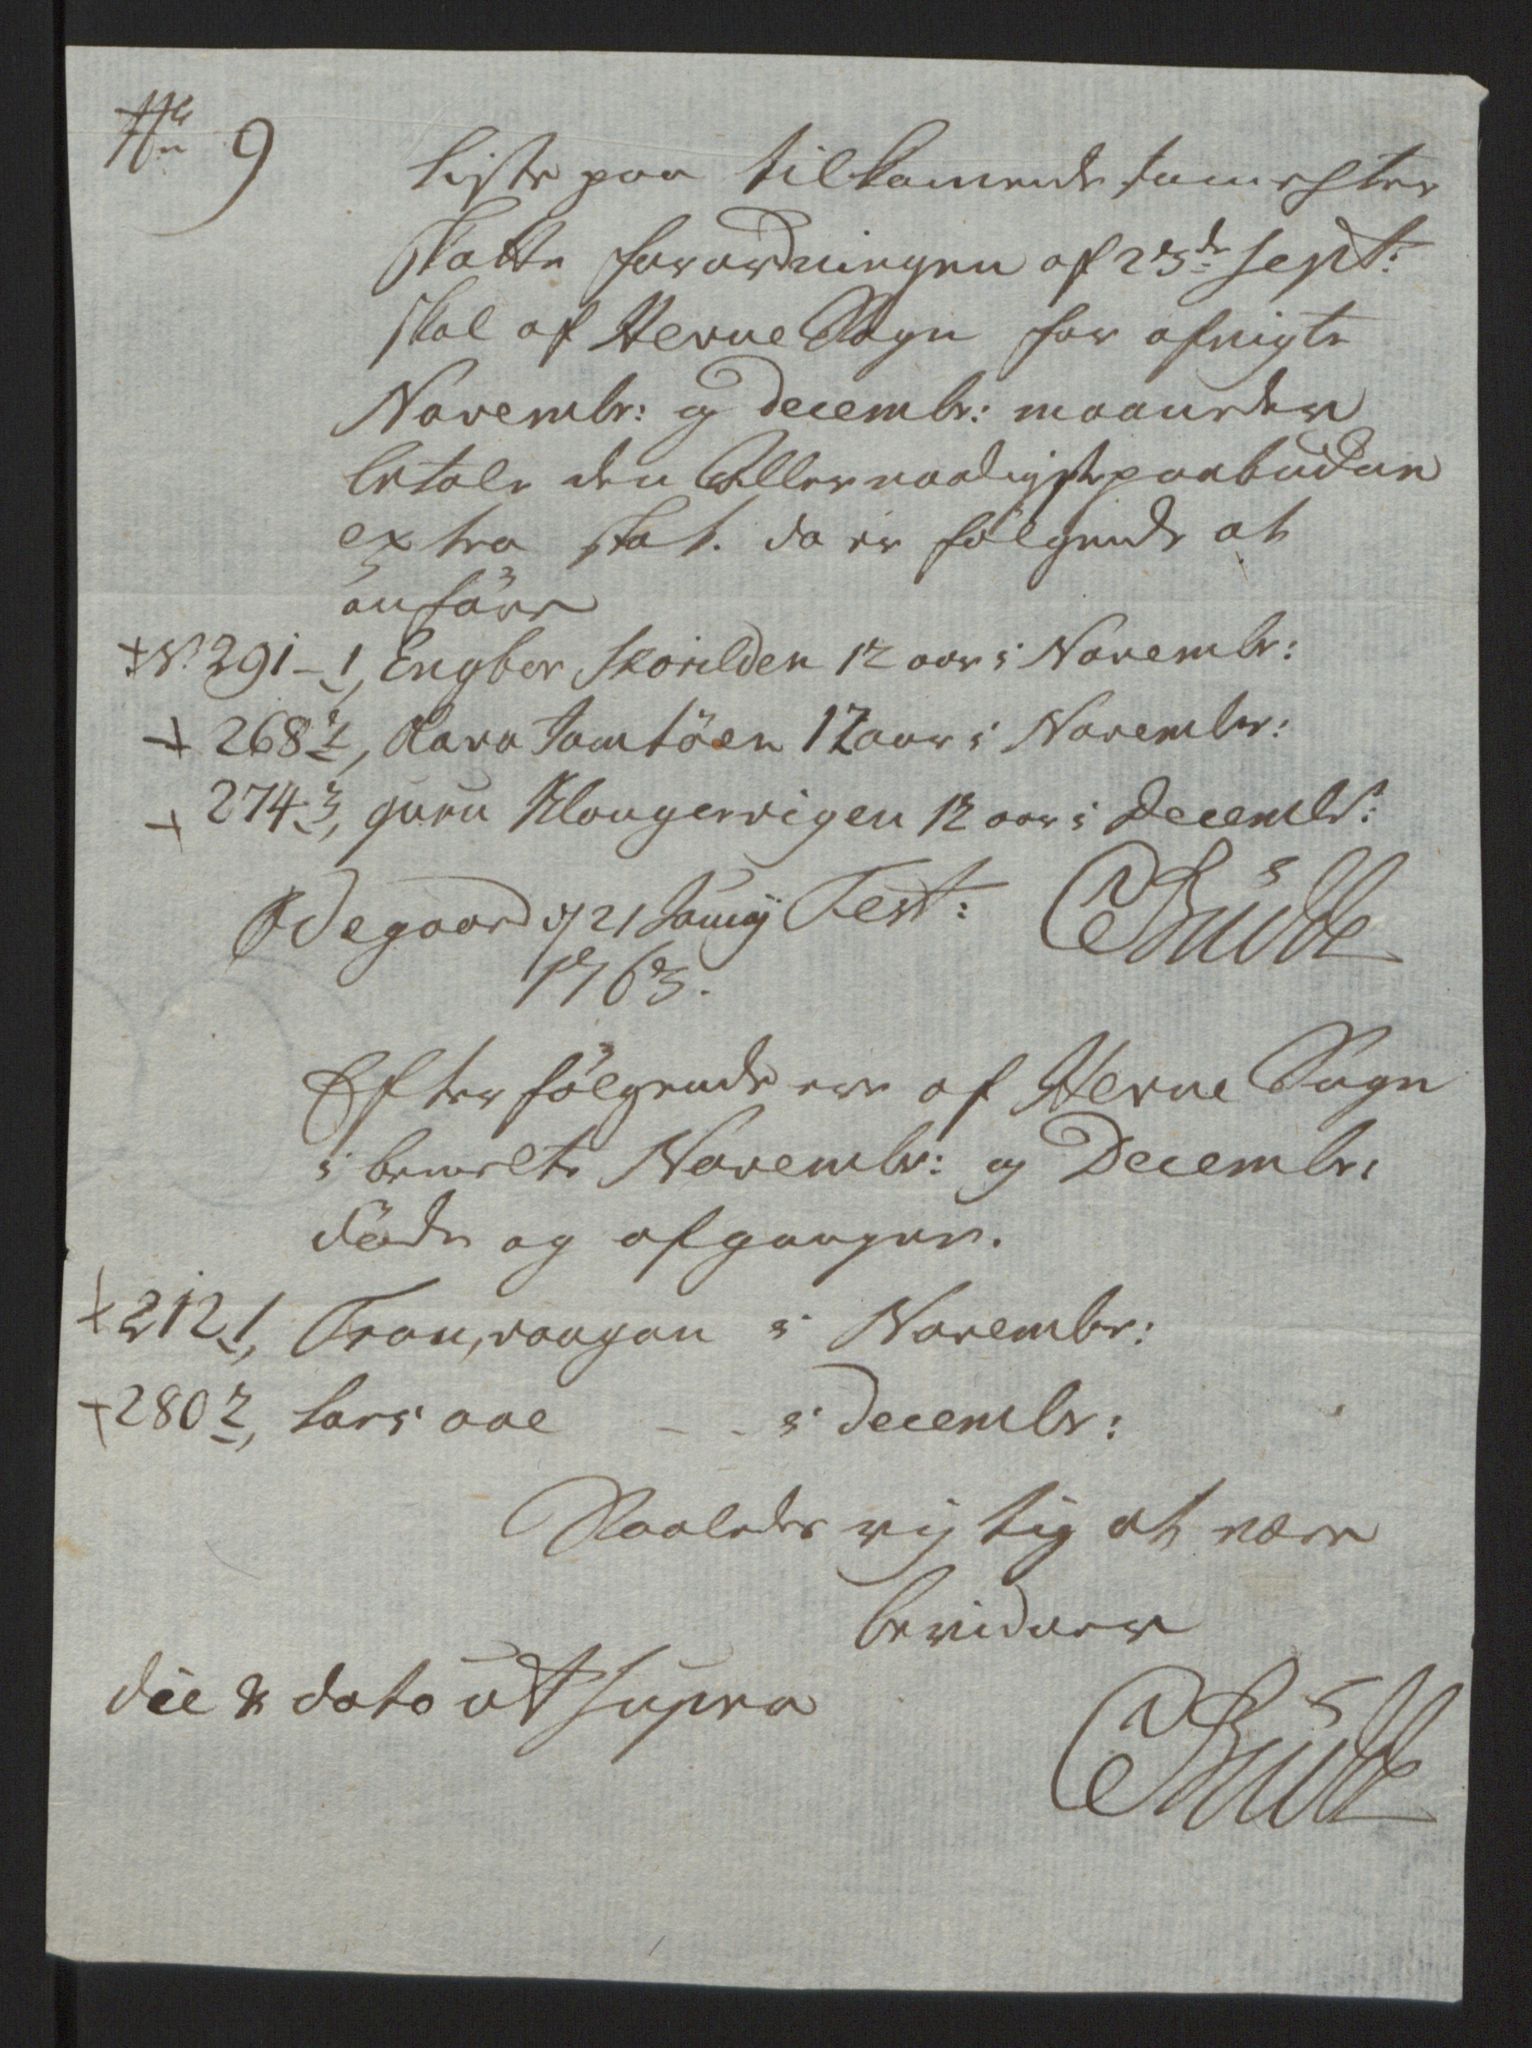 No 9
Liste paa tilkomende som efter
skatte forordningen af 23de Sept:
skal af Herne Sogn for afvigte
Novembr: og Decembr: maaneder
betale den Allernaadigst paabudne
extra skat. da er følgende at
anføre
+ No 291 - 1, Engbor Skeielden 12 aar i Novembr:
+ 268 2, Kara Tamsöen 12 aar i Novembr:
+ 274 3, guru Klongervigen 12 aar i Decembr:
Ødegaard d 21 Januarij Test: CBudde
1763.
Efterfølgende ere af Herne Sogn
i bemelte Novembr: og Decembr:
døde og afgangne.
+ 212 1, Tron, vaagan i Novembr:
+ 280 2, Lars aae - - i Decembr:
Saaledes rigtig at være
bevidner
die & dato ut supra
CBudde